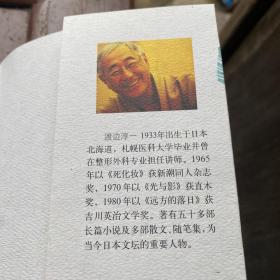 渡边淳一 1933年出生于日本
北海道，札幌医科大学毕业并曾
在整形外科专业担任讲师。1965
年以《死化妆》获新潮同人杂志
奖，1970年以《光与影》获直木
奖，1980年以《远方的落日》获
吉川英治文学奖。著有五十多部
长篇小说及多部散文、随笔集，为
当今日本文坛的重要人物。